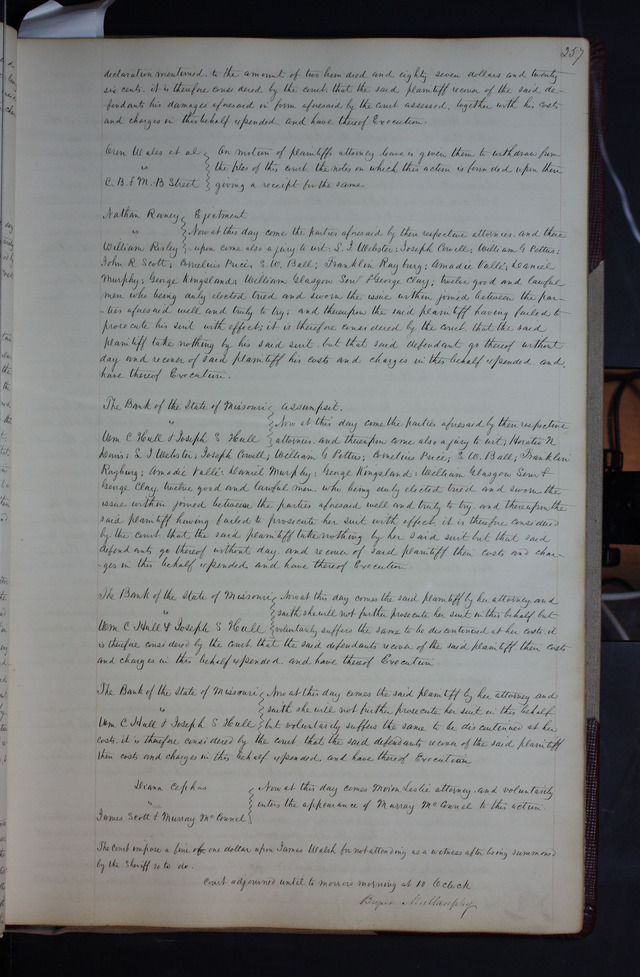 257
declaration mentioned to the amount of two hundred and eighty seven dollars and twenty
six cents. it is therefore considered by the court that the said plaintiff recover of the said de-
fendants his damages aforesaid in form aforesaid by the court assessed, together with his costs
and charges in this behalf expended and have thereof Execution.
Oren Wales et al On motion of plaintiffs attorney leave is given them to withdraw from
" the files of this court the notes on which this action is founded upon their
C. B. & M. B Street giving a receipt for the same
Nathan Ranney Ejectment
" Now at this day come the parties aforesaid by their respective attornies. and there
William Risley upon come also a jury to wit: S. I Webster; Joseph Cowell; William G Pettus;
John R Scott; Cornelius Price; S. W. Ball; Franklin Rayburg; Amadie Vallé; Daniel
Murphy; George Kingsland; William Glasgow Senr & George Clay; twelve good and lawful
men who being duly elected tried and sworn the issue within joined between the par-
-ties aforesaid well and truly to try; and thereupon the said plaintiff having failed to
prosecute his suit with effect; it is therefore considered by the court that the said
plaintiff take nothing by his said suit. but that said defendant go thereof without
day and recover of said plaintiff his costs and charges in this behalf expended and
have thereof Execution.
The Bank of the State of Missouri Assumpsit.
" Now at this day come the parties aforesaid by their respective
Wm C Hull & Joseph S Hull attornies. and thereupon come also a jury to wit; Horatio N
Davis; S I Webster; Joseph Cowell; William G Pettus; Cornelius Price; S. W. Ball; Franklin
Rayburg; Amadie Vallé; Daniel Murphy; George Kingsland; William Glasgow Senr &
George Clay, twelve good and lawful men. who being duly elected tried and sworn the
issue within joined between the parties aforesaid well and truly to try and thereupon the
said plaintiff having failed to prosecute her suit with effect; it is therefore considered
by the court that the said plaintiff take nothing by her said suit but that said
defendants go thereof without day. and recover of said plaintiff their costs and char-
-ges in this behalf expended and have thereof Execution
The Bank of the State of Missouri Now at this day comes the said plaintiff by her attorney and
" saith she will not further prosecute her suit in this behalf but
Wm C Hull & Joseph S Hull voluntarily suffers the same to be discontinued at her costs. it
is therefore considered by the court that the said defendants recover of the said plaintiff their costs
and charges in this behalf expended. and have thereof Execution
The Bank of the State of Missouri Now at this day comes the said plaintiff by her attorney and
" saith she will not further prosecute her suit in this behalf
Wm C Hull & Joseph S Hull but voluntarily suffers the same to be discontinued at her
costs. it is therefore considered by the court. that the said defendants recover of the said plaintiff
their costs and charges in this behalf expended. and have thereof Execution
Cephas Now at this day comes Miron Leslie attorney and voluntarily
" enters the appearance of Murray McConnel to this action.
James Scott & Murray McConnel
The Court impose a fine of one dollar upon James Walsh for not attending as a witness after being summoned
by the Sheriff so to do.
Court adjourned until to morrow morning at 10 Oclock
Bryan Mullanphy